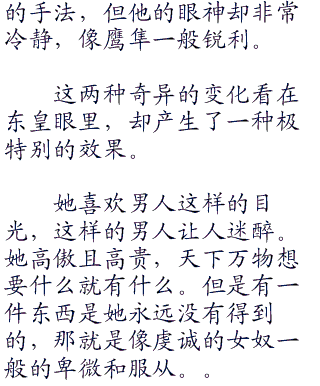 的手法，但他的眼神却非常
冷静，像鹰隼一般锐利。
这两种奇异的变化看在
东皇眼里，却产生了一种极
特别的效果。
她喜欢男人这样的目
光，这样的男人让人迷醉。
她高傲且高贵，天下万物想
要什么就有什么。但是有一
件东西是她永远没有得到
的，那就是像虔诚的女奴一
般的卑微和服从。。